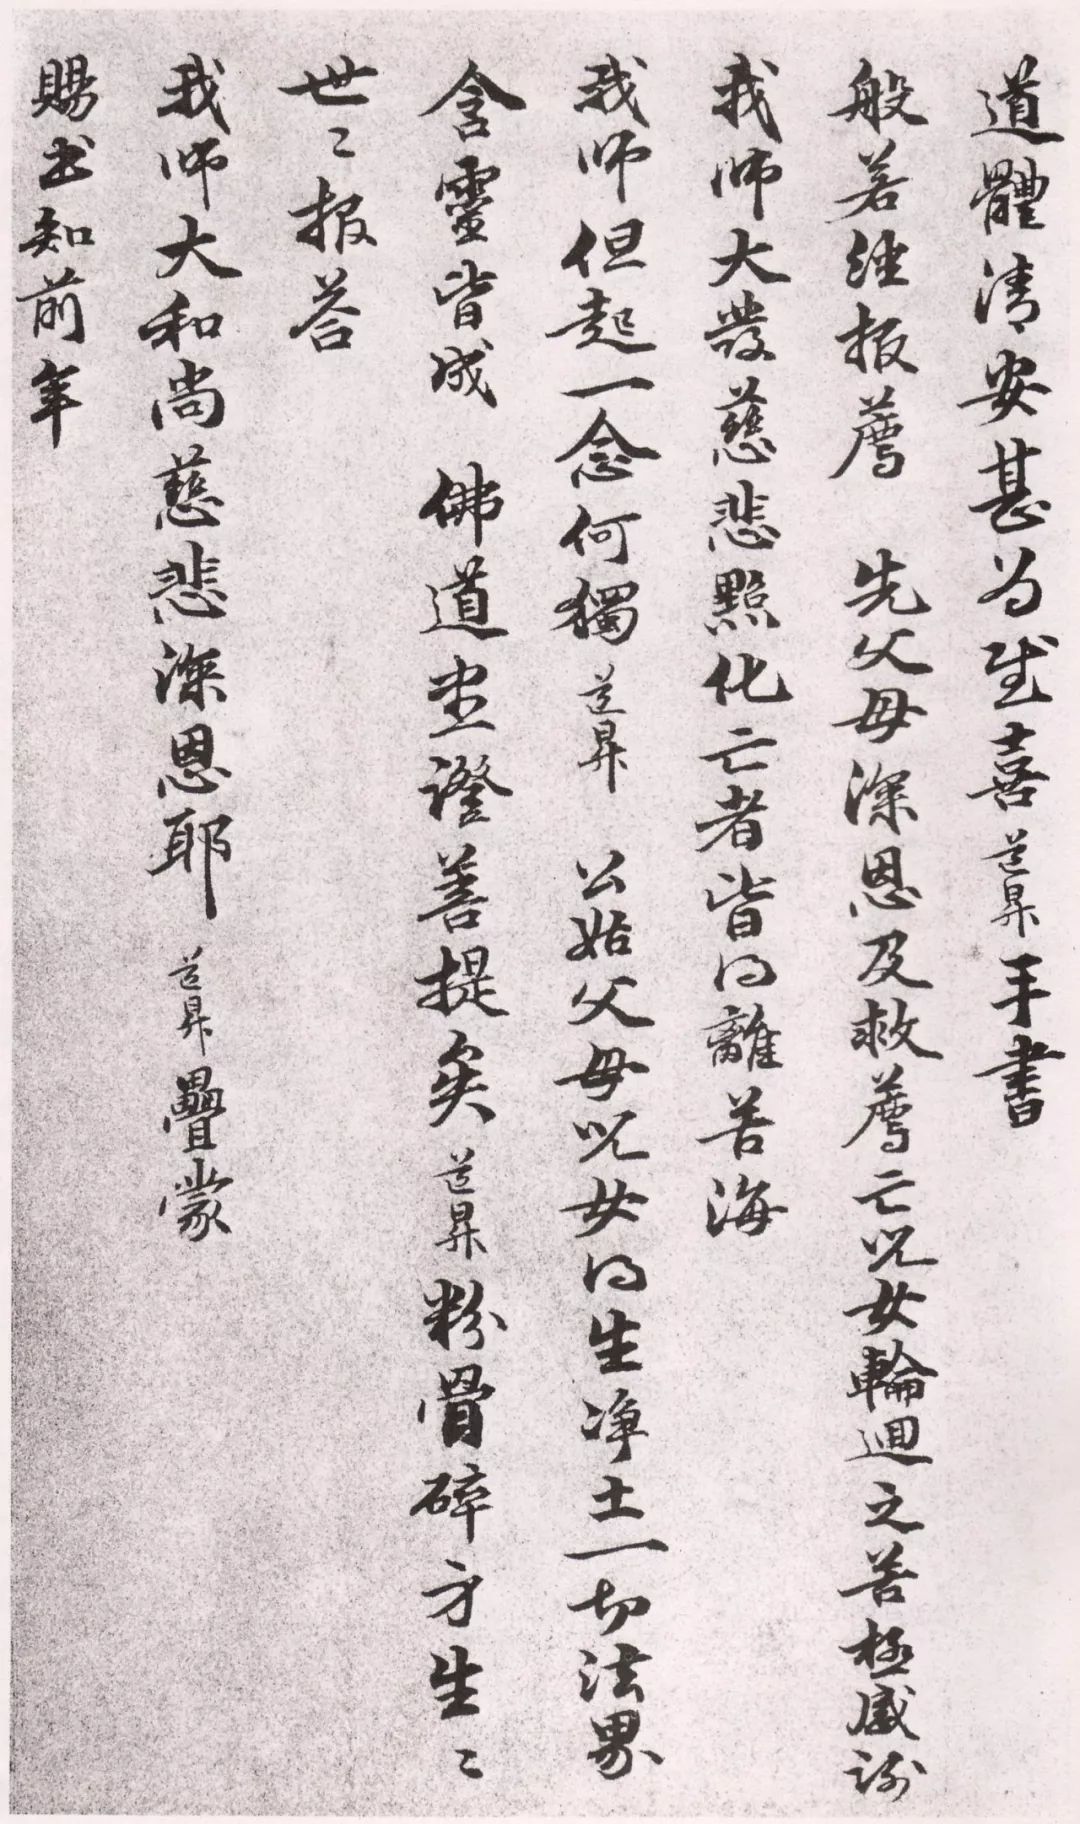 道體清安甚为慰喜道昇手書
般若经报薦 先父母深恩及救薦亡児女輪迴之苦極感谢
我师大發慈悲點化亡者皆得離苦海
我师但起一念何獨道昇 公姑父母児女得生净土一切法界
含靈皆成 佛道坐證善提矣道昇粉骨碎身生〻
世〻报答
我师大和尚慈悲深恩耶道昇疊蒙
賜书知前年